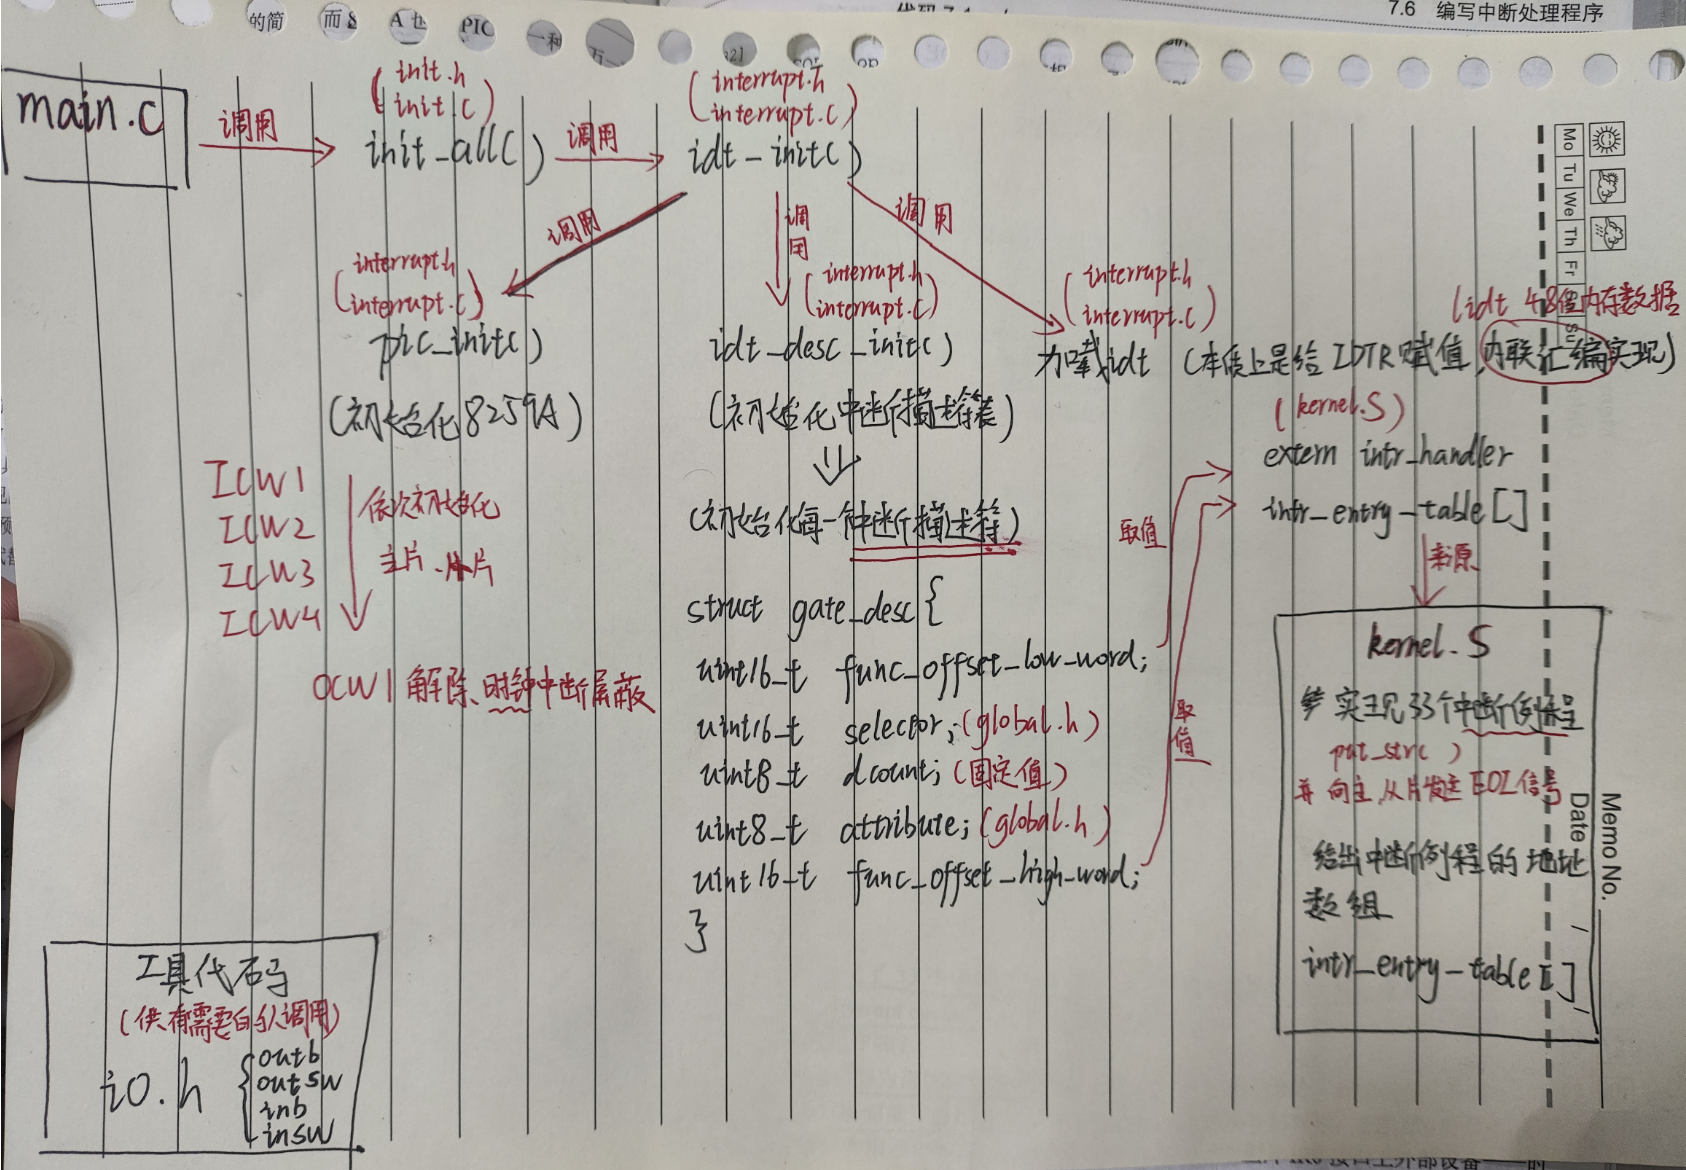 7.6 编写中断处理程序
的简
而
PIC
一种
main.c
调用
(init.h
init.c)
init_all()
调用
(interrupt.h
interrupt.c)
idt_init()
调用
调用
调用
(interrupt.h
interrupt.c)
pic_init()
(初始化8259A)
ICW1
ICW2
ICW3
ICW4
依次初始化
主片、从片
OCW1解除、时钟中断屏蔽
(interrupt.h
interrupt.c)
idt_desc_init()
(初始化中断描述符表)
(初始化每一个中断描述符)
struct gate_desc {
uint16_t func_offset_low_word;
uint16_t selector;(global.h)
uint8_t dcount;(固定值)
uint8_t attribute;(global.h)
uint16_t func_offset_high_word;
}
(interrupt.h
interrupt.c)
(idt 48位内存数据
加载idt (本质上是给IDTR赋值,内联汇编实现)
取值
取值
(kernel.S)
extern intr_handler
intr_entry_table[]
来源
kernel.S
实现33个中断例程
put_str()
并向主,从片发送EOI信号
给出中断例程的地址
数组
intr_entry_table[]
工具代码
(供有需要的人调用)
io.h {
outb
outsw
inb
insw
Mo Tu We Th Fr
Memo No.
Date / /